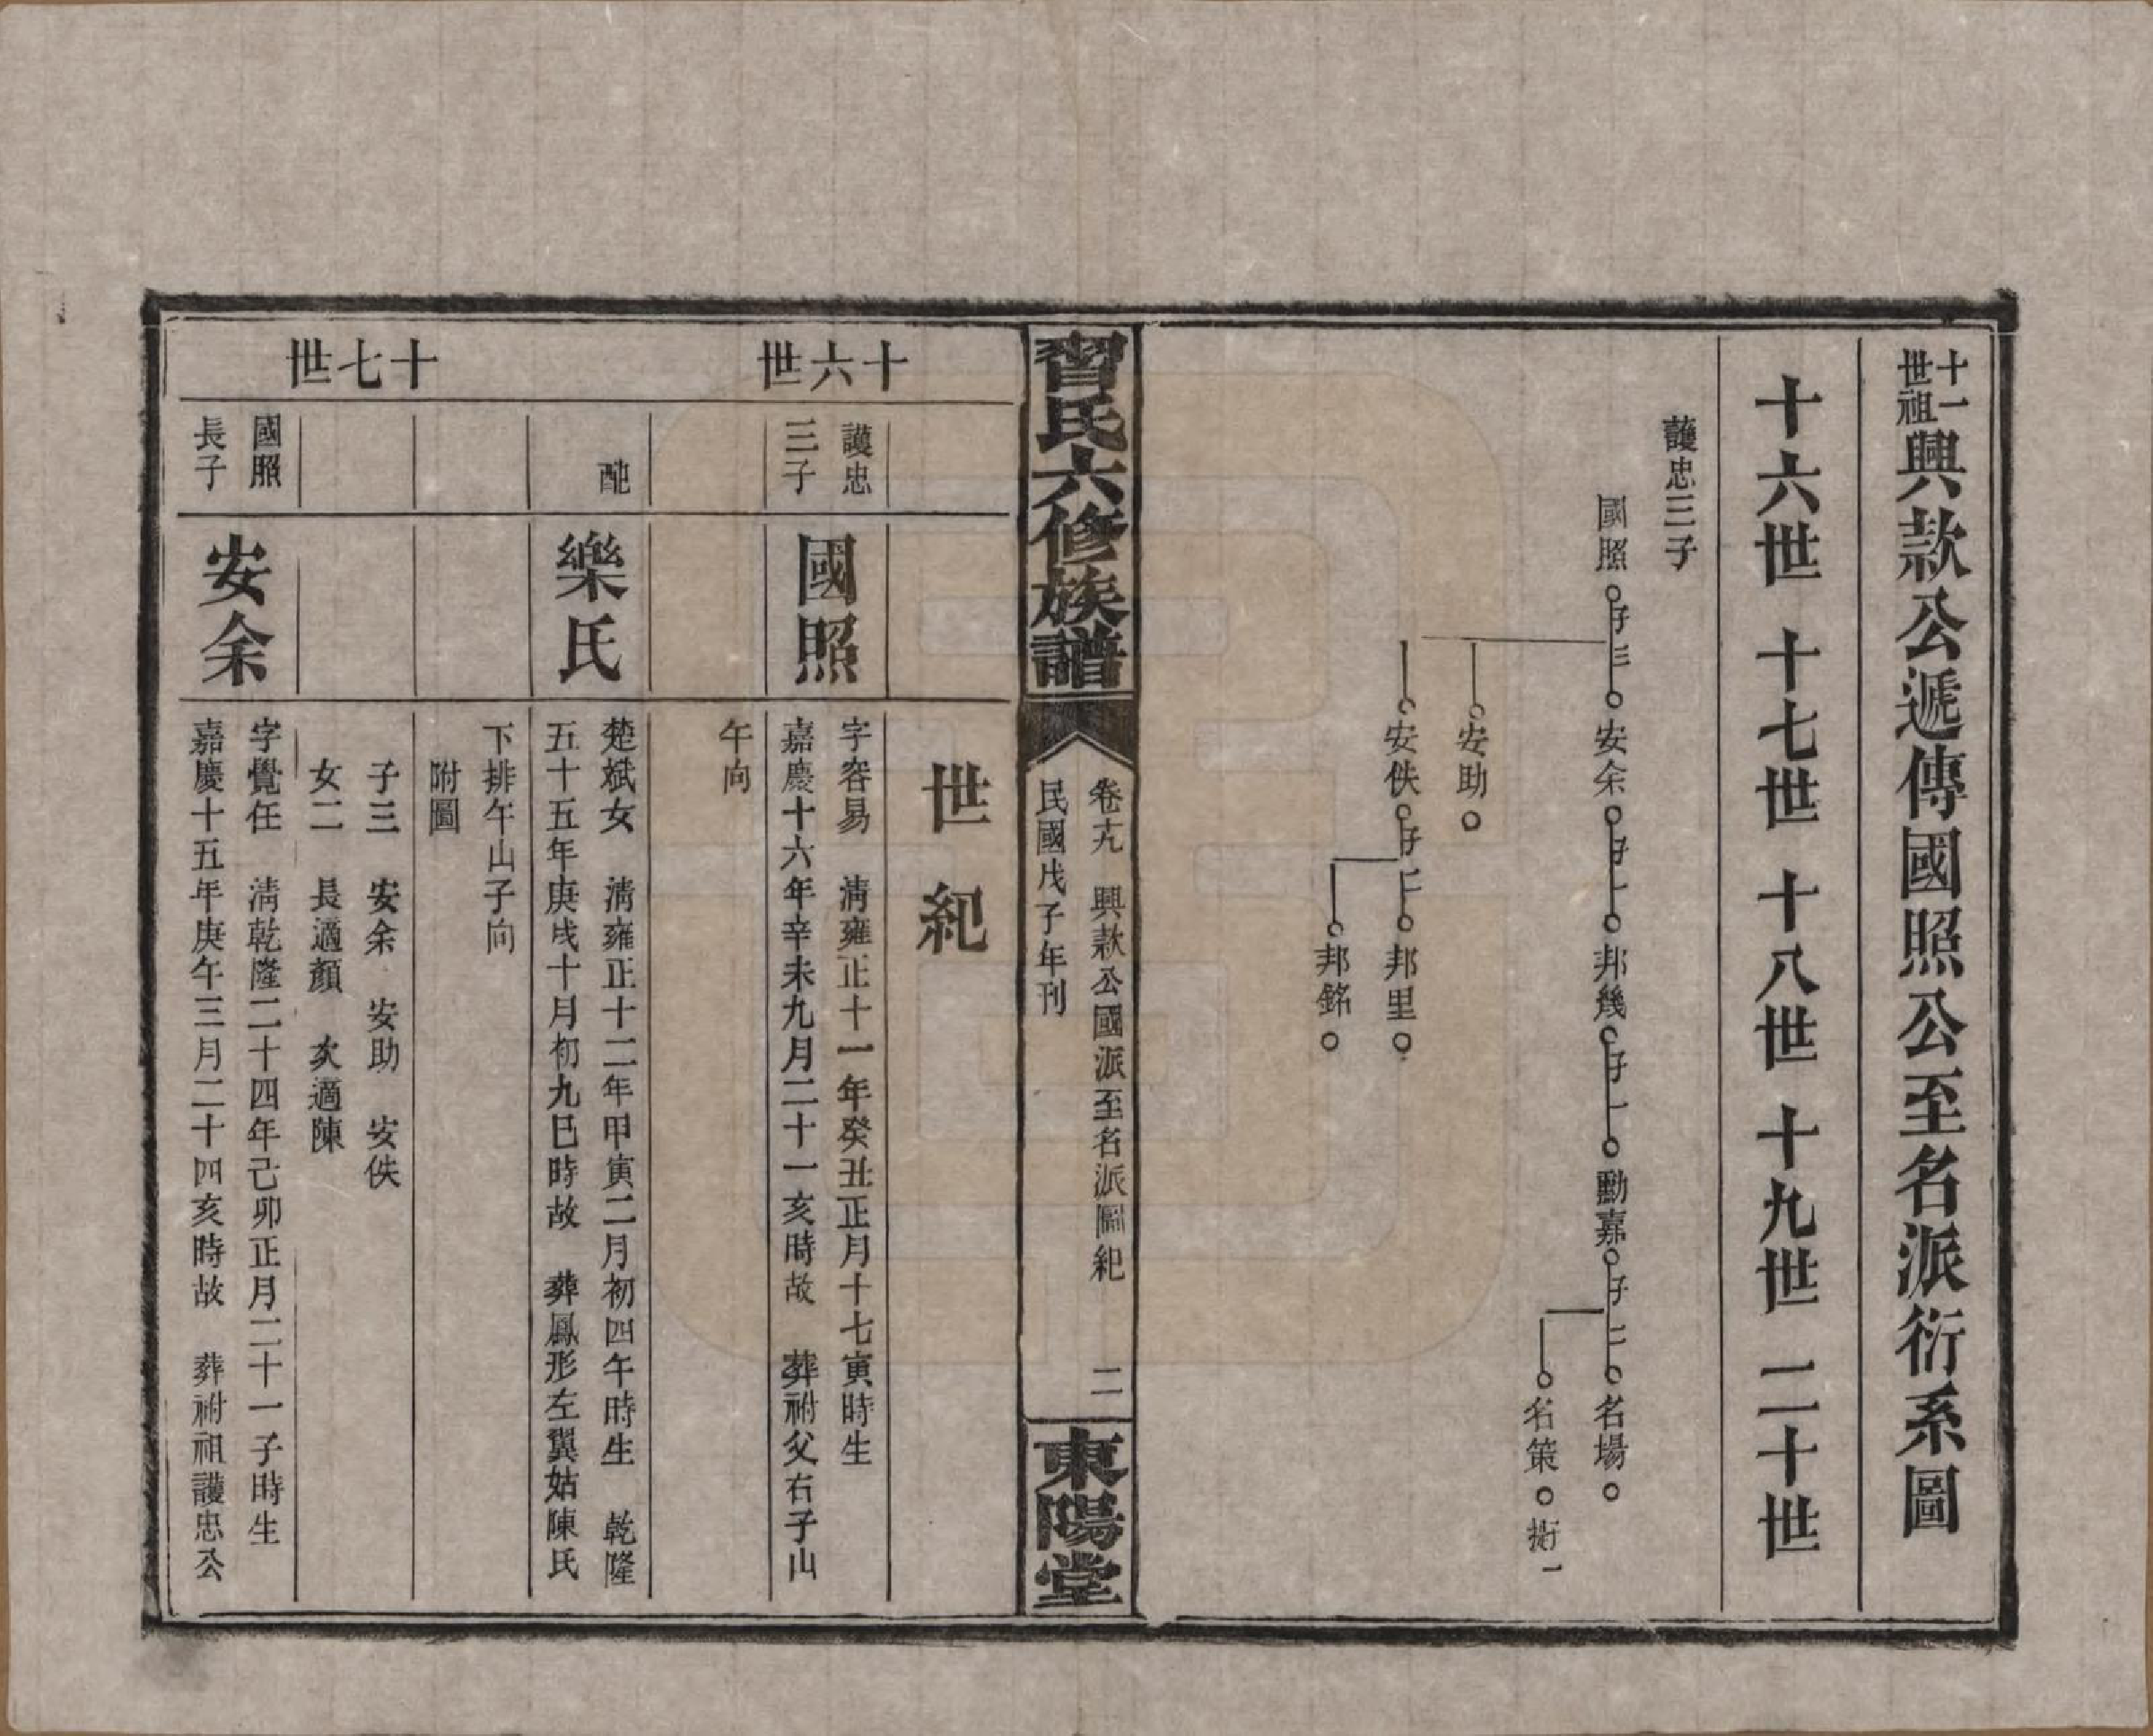 十一世祖興款公遞傳國照公至名派衍系圖
十六世 十七世 十八世 十九世 二十世
護忠三子
國照 子三 安余 子一 邦幾 子一 勳嘉 子二 名場
名策 銜一
安助
安佚 子二 邦里
邦銘
習氏六修族譜
卷十九 興款公國派至名派圖紀 二
民國戊子年刊
東陽堂
世紀
十六世
護忠
三子
國照
字容易 清雍正十一年癸丑正月十七寅時生
嘉慶十六年辛未九月二十一亥時故 葬祔父右子山
午向
配
樂氏
楚斌女 清雍正十二年甲寅二月初四午時生 乾隆
五十五年庚戌十月初九巳時故 葬鳳形左翼姑陳氏
下排午山子向
附圖
子三 安余 安助 安佚
女二 長適顏 次適陳
十七世
國照
長子
安余
字覺任 清乾隆二十四年己卯正月二十一子時生
嘉慶十五年庚午三月二十四亥時故 葬祔祖護忠公